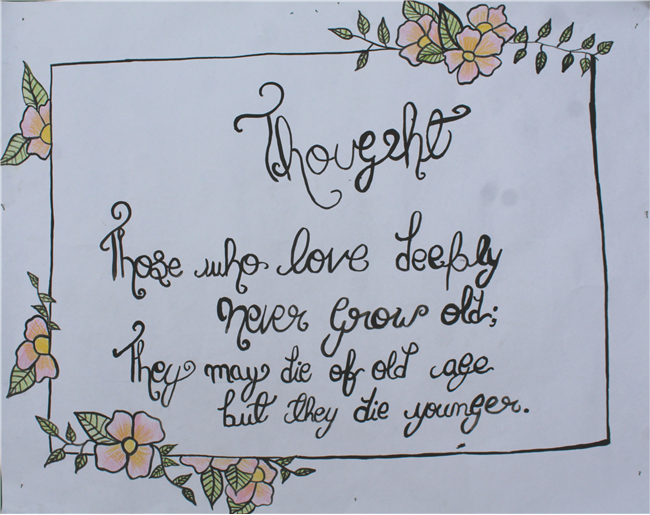 Thought
Those who love deeply
never grow old;
They may die of old age
but they die younger.